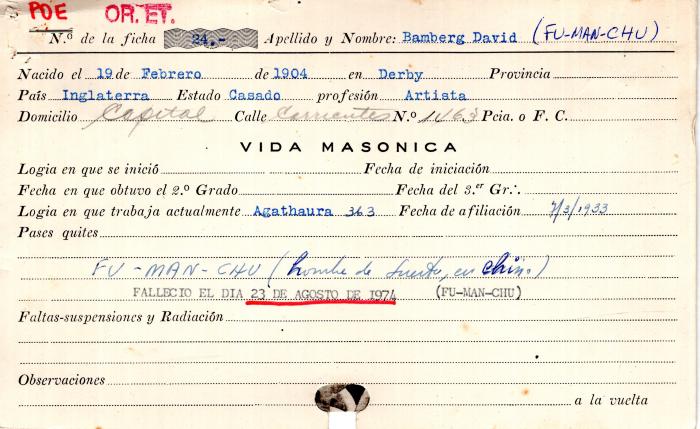 PDE OR.ET.
N.º de la ficha 24.- Apellido y Nombre: Bamberg David (FU-MAN-CHU)
Nacido el 19 de Febrero de 1904 en Derby Provincia
País Inglaterra Estado Casado profesión Artista
Domicilio Capital Calle Corrientes N.º 1463 Pcia. o F. C.
VIDA MASONICA
Logia en que se inició Fecha de iniciación
Fecha en que obtuvo el 2.º Grado Fecha del 3.er Gr∴
Logia en que trabaja actualmente Agathaura 363 Fecha de afiliación 7/3/1933
Pases quites
FU-MAN-CHU (hombre de suerte, en chino)
FALLECIO EL DIA 23 DE AGOSTO DE 1974 (FU-MAN-CHU)
Faltas-suspensiones y Radiación
Observaciones
a la vuelta